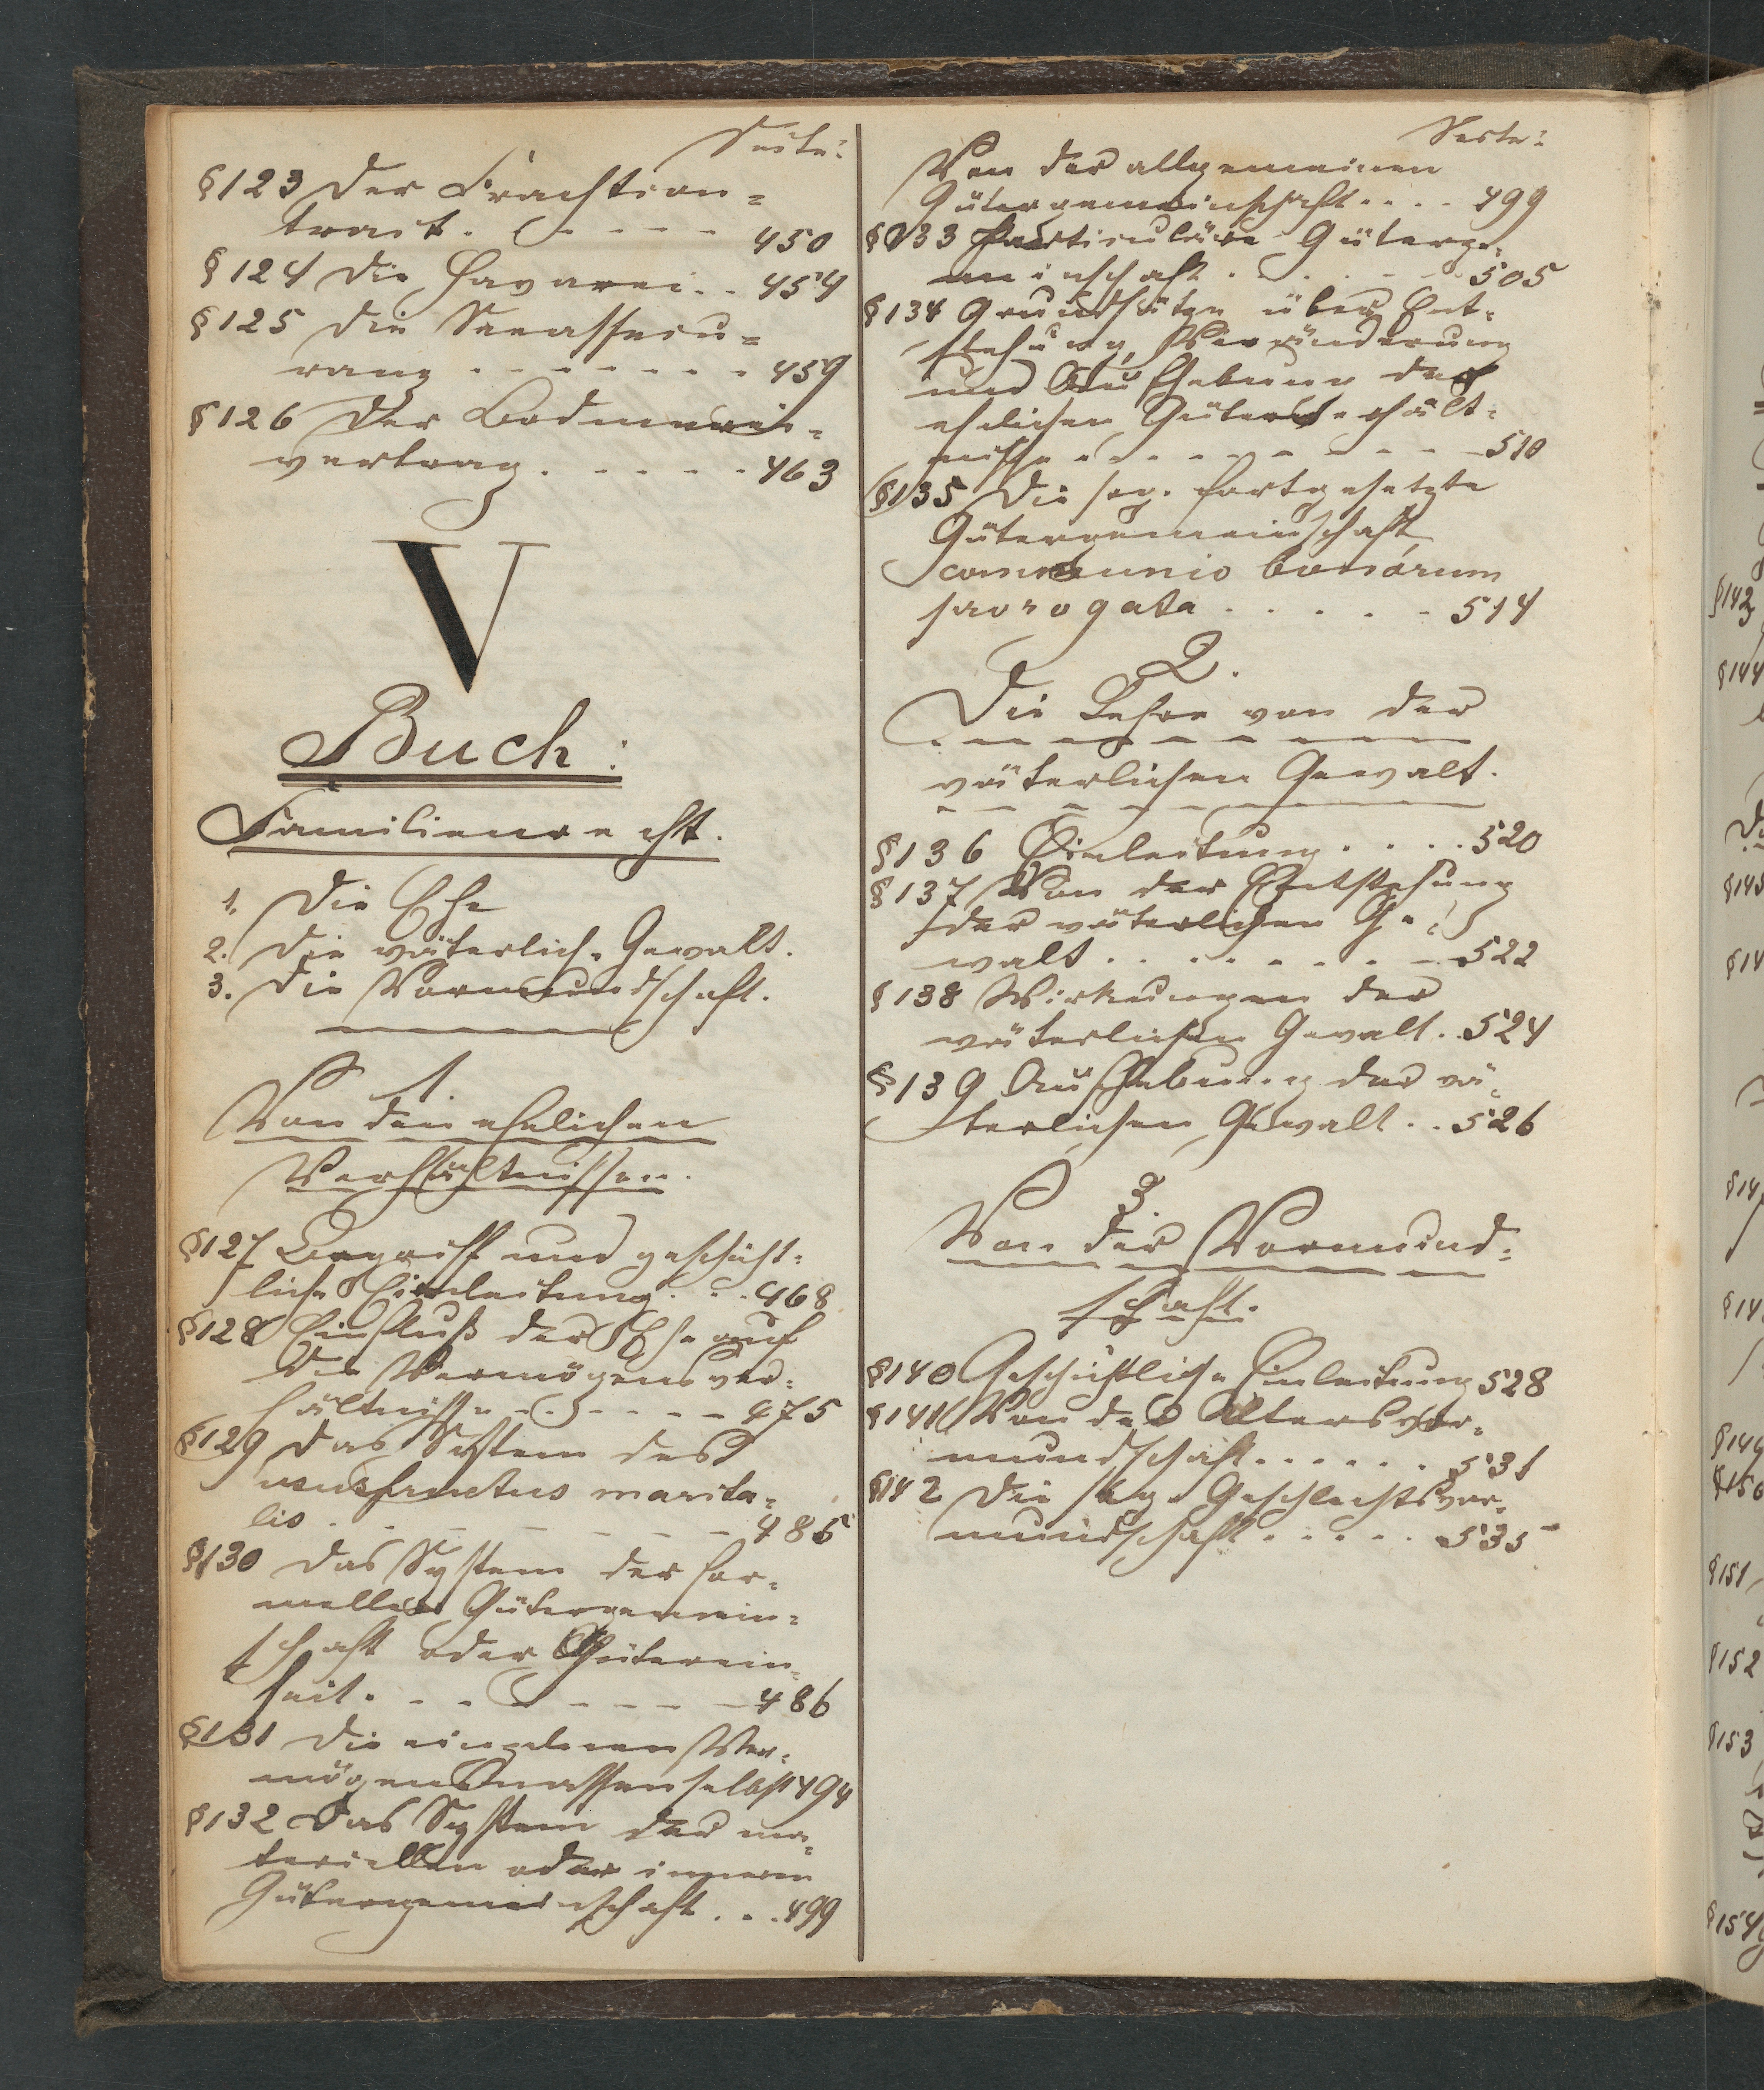 Seite:
§123 Der Frachtcon=
tract. - - - - - 450
§124 Die Havarei. . 454
§125 Die Seeassecu=
ranz - - - - - - - 459
§126 Der Bodmerei=
vertrag. - - - - - 463
V
Buch:
Familienrecht.
1. Die Ehe
2. Die väterliche Gewalt.
3. Die Vormundschaft.
1.
Von den ehelichen
Verhältnissen.
§127 Begriff und geschicht=
liche Einleitung. . . 468
§128 Einfluß der Ehe auf
die Vermögensver=
hältnisse - - - - - - 475
§129 Das System des
ususfructus marita=
lis . . - - - - - - 485
§130 Das System der for=
mellen Gütergemein=
schaft oder Güterein=
heit. - - - - - - - 486
§131 Die einzelnen Ver=
mögensmassen selbst 494
§132 Das System der ma=
teriellen oder inneren
Gütergemeinschaft . . . 499
Seite:
Von der allgemeinen
Gütergemeinschaft . . . . 499
§133 Particuläre Güterge=
meinschaft . . . . - - 505
§134 Grundsätze über Ent=
stehung, Veränderung
und Aufhebung der
ehelichen Güterverhält=
nisse - - - - - - - - - 510
§135 Die sog. fortgesetzte
Gütergemeinschaft,
communio bonorum
prorogata . . . . - 514
2.
Die Lehre von der
väterlichen Gewalt.
§136 Einleitung . . . . 520
§137 Von der Entstehung
der väterlichen Ge=
walt . . . . - - . - 522
§138 Wirkungen der
väterlichen Gewalt . . 524
§139 Aufhebung der vä=
terlichen Gewalt . . 526
3.
Von der Vormund=
schaft.
§140 Geschichtliche Einleitung 528
§141 Von der Altersvor=
mundschaft . . . . . . 531
§142 Die sog. Geschlechtsvor=
mundschaft . . . . . 535
§143
§144
§145
§14
§147
§14
§149
§150
§151
§152
§153
§154